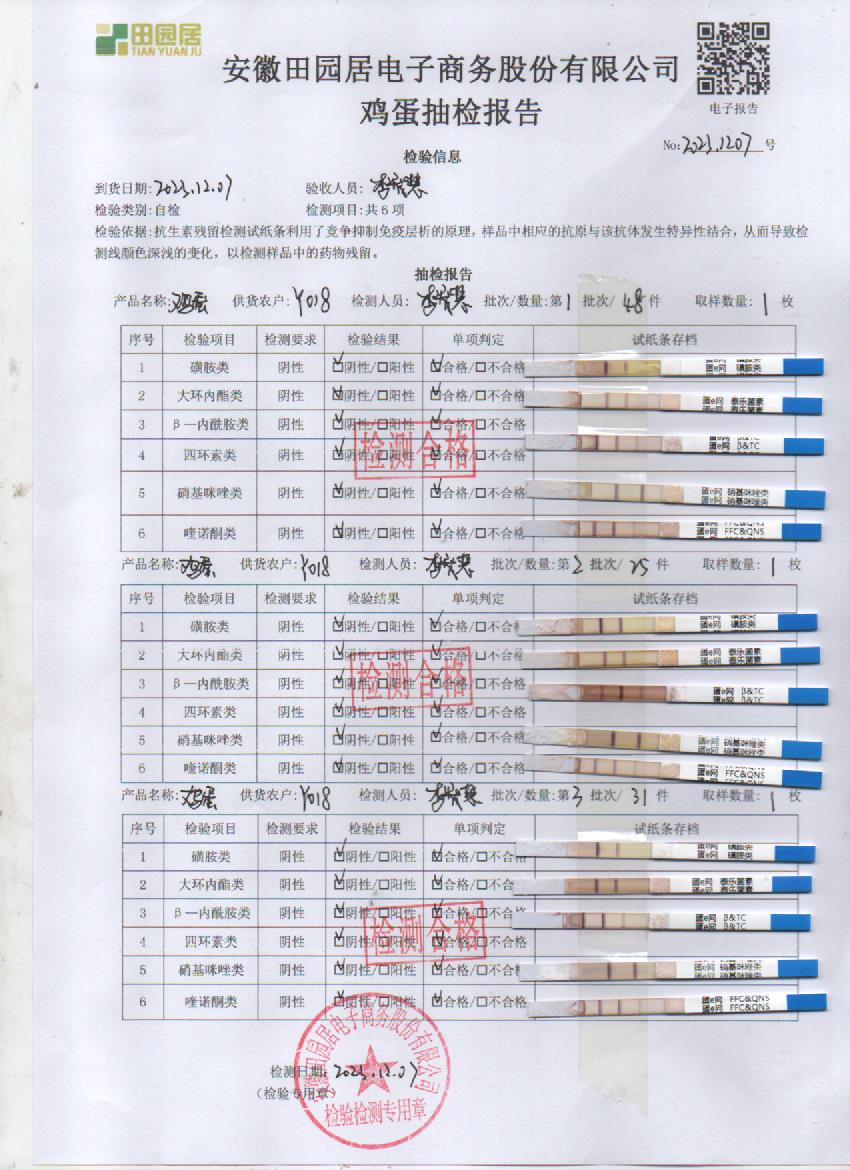 田园居
TIAN YUAN JU
安徽田园居电子商务股份有限公司
鸡蛋抽检报告
电子报告
No:2023.1207号
检验信息
到货日期:2023.12.07 验收人员:
检验类别:自检 检测项目:共6项
检验依据:抗生素残留检测试纸条利用了竞争抑制免疫层析的原理，样品中相应的抗原与该抗体发生特异性结合，从而导致检
测线颜色深浅的变化，以检测样品中的药物残留。
抽检报告
产品名称:鸡蛋 供货农户:Y018 检测人员: 批次/数量:第1批次/48件 取样数量:1枚
序号 检验项目 检测要求 检验结果 单项判定 试纸条存档
1 磺胺类 阴性 ☑阴性/☐阳性 ☑合格/☐不合格 蛋e网 磺胺类
2 大环内酯类 阴性 ☑阴性/☐阳性 ☑合格/☐不合格 蛋e网 泰乐菌素
3 β—内酰胺类 阴性 ☑阴性/☐阳性 ☑合格/☐不合格
4 四环素类 阴性 ☑阴性/☐阳性 ☑合格/☐不合格 蛋e网 β&TC
5 硝基咪唑类 阴性 ☑阴性/☐阳性 ☑合格/☐不合格 蛋e网 硝基咪唑类
6 喹诺酮类 阴性 ☑阴性/☐阳性 ☑合格/☐不合格 蛋e网 FFC&QNS
检测合格
产品名称:鸡蛋 供货农户:Y018 检测人员: 批次/数量:第2批次/25件 取样数量:1枚
序号 检验项目 检测要求 检验结果 单项判定 试纸条存档
1 磺胺类 阴性 ☑阴性/☐阳性 ☑合格/☐不合格 蛋e网 磺胺类
2 大环内酯类 阴性 ☑阴性/☐阳性 ☑合格/☐不合格 蛋e网 泰乐菌素
3 β—内酰胺类 阴性 ☑阴性/☐阳性 ☑合格/☐不合格 蛋e网 β&TC
4 四环素类 阴性 ☑阴性/☐阳性 ☑合格/☐不合格
5 硝基咪唑类 阴性 ☑阴性/☐阳性 ☑合格/☐不合格 蛋e网 硝基咪唑类
6 喹诺酮类 阴性 ☑阴性/☐阳性 ☑合格/☐不合格 蛋e网 FFC&QNS
检测合格
产品名称:鸡蛋 供货农户:Y018 检测人员: 批次/数量:第3批次/31件 取样数量:1枚
序号 检验项目 检测要求 检验结果 单项判定 试纸条存档
1 磺胺类 阴性 ☑阴性/☐阳性 ☑合格/☐不合格 蛋e网 磺胺类
2 大环内酯类 阴性 ☑阴性/☐阳性 ☑合格/☐不合 蛋e网 泰乐菌素
3 β—内酰胺类 阴性 ☑阴性/☐阳性 ☑合格/☐不合格 蛋e网 β&TC
4 四环素类 阴性 ☑阴性/☐阳性 ☑合格/☐不合格
5 硝基咪唑类 阴性 ☑阴性/☐阳性 ☑合格/☐不合格 蛋e网 硝基咪唑类
6 喹诺酮类 阴性 ☑阴性/☐阳性 ☑合格/☐不合格 蛋e网 FFC&QNS
检测合格
安徽田园居电子商务股份有限公司
检测日期:2023.12.07
(检验专用章)
检验检测专用章